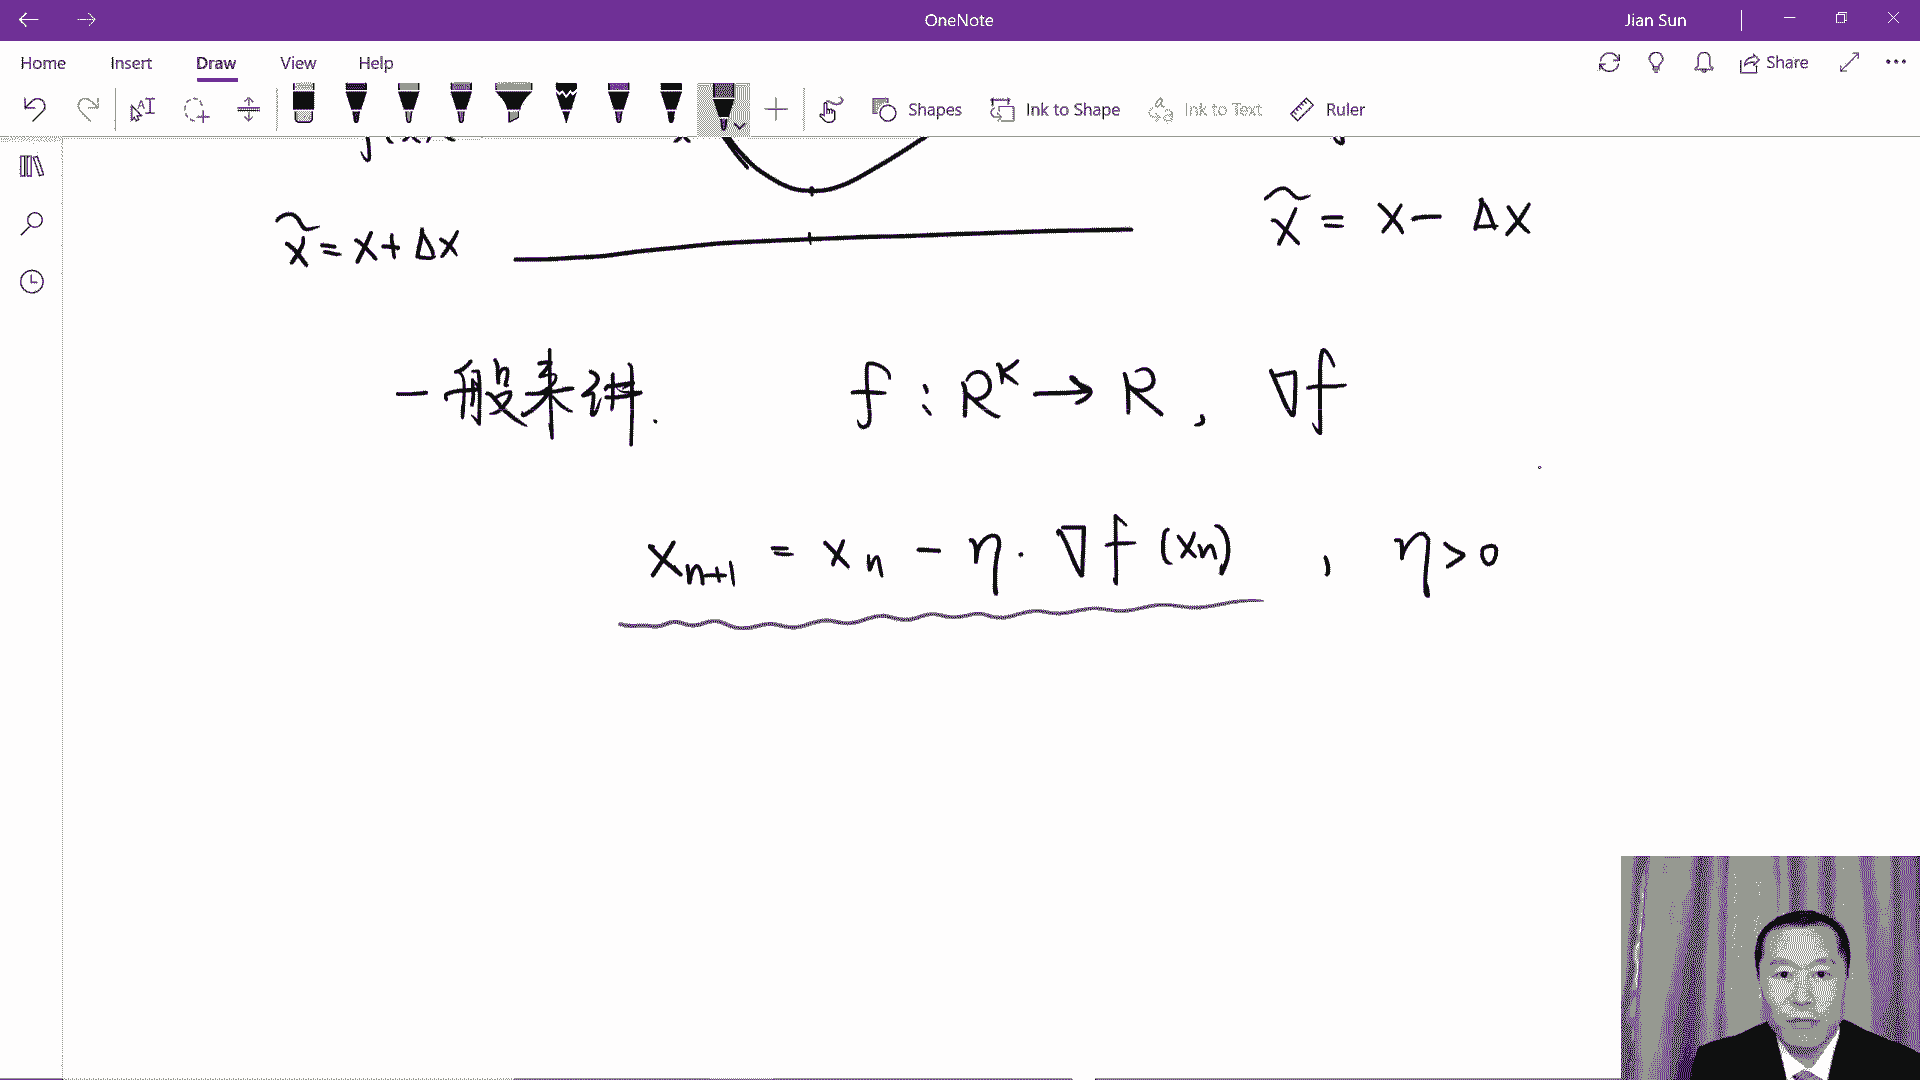 OneNote
Jian Sun
Home Insert Draw View Help
Share
Shapes Ink to Shape Ink to Text Ruler
x̃ = x + Δx
x̃ = x − Δx
一般来讲. f : R^K → R , ∇f
x_{n+1} = x_n − η · ∇f (x_n) , η > 0